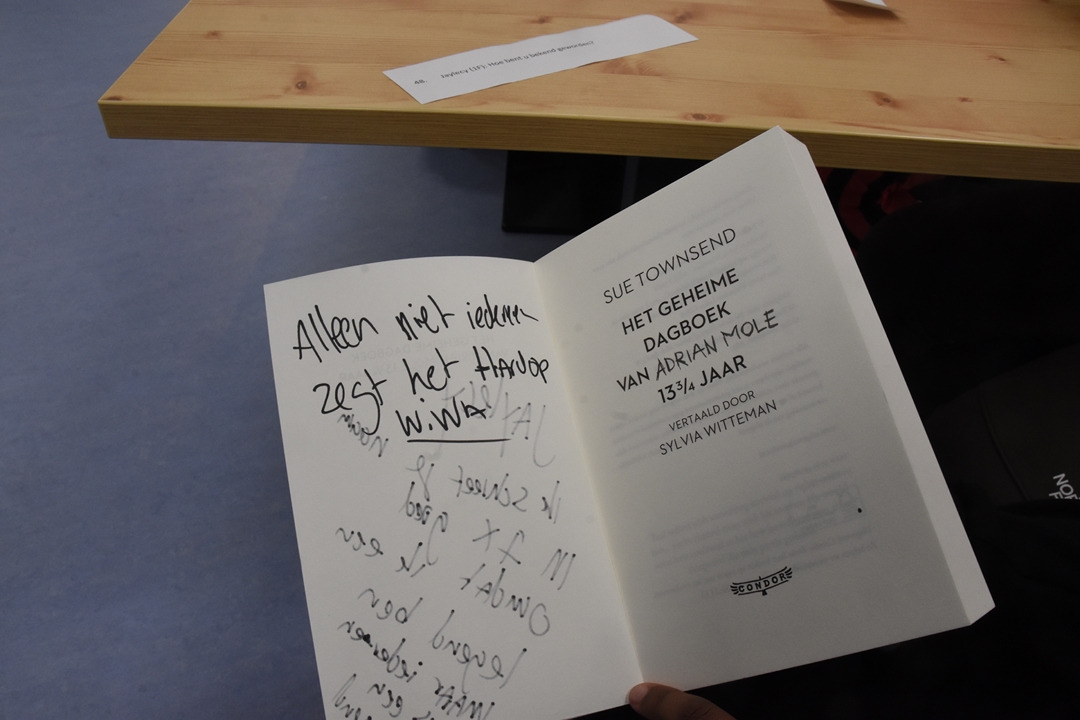 48. Jaylecy (17): Hoe bent u bekend geworden?
Alleen niet iedereen
zegt het HARDOP
W.WA
Ik schreef je naam
IN 7X goed
OMDAT Ik een
legend ben
MAAR iedereen
een
SUE TOWNSEND
HET GEHEIME
DAGBOEK
VAN ADRIAN MOLE
13 3/4 JAAR
VERTAALD DOOR
SYLVIA WITTEMAN
CONDOR